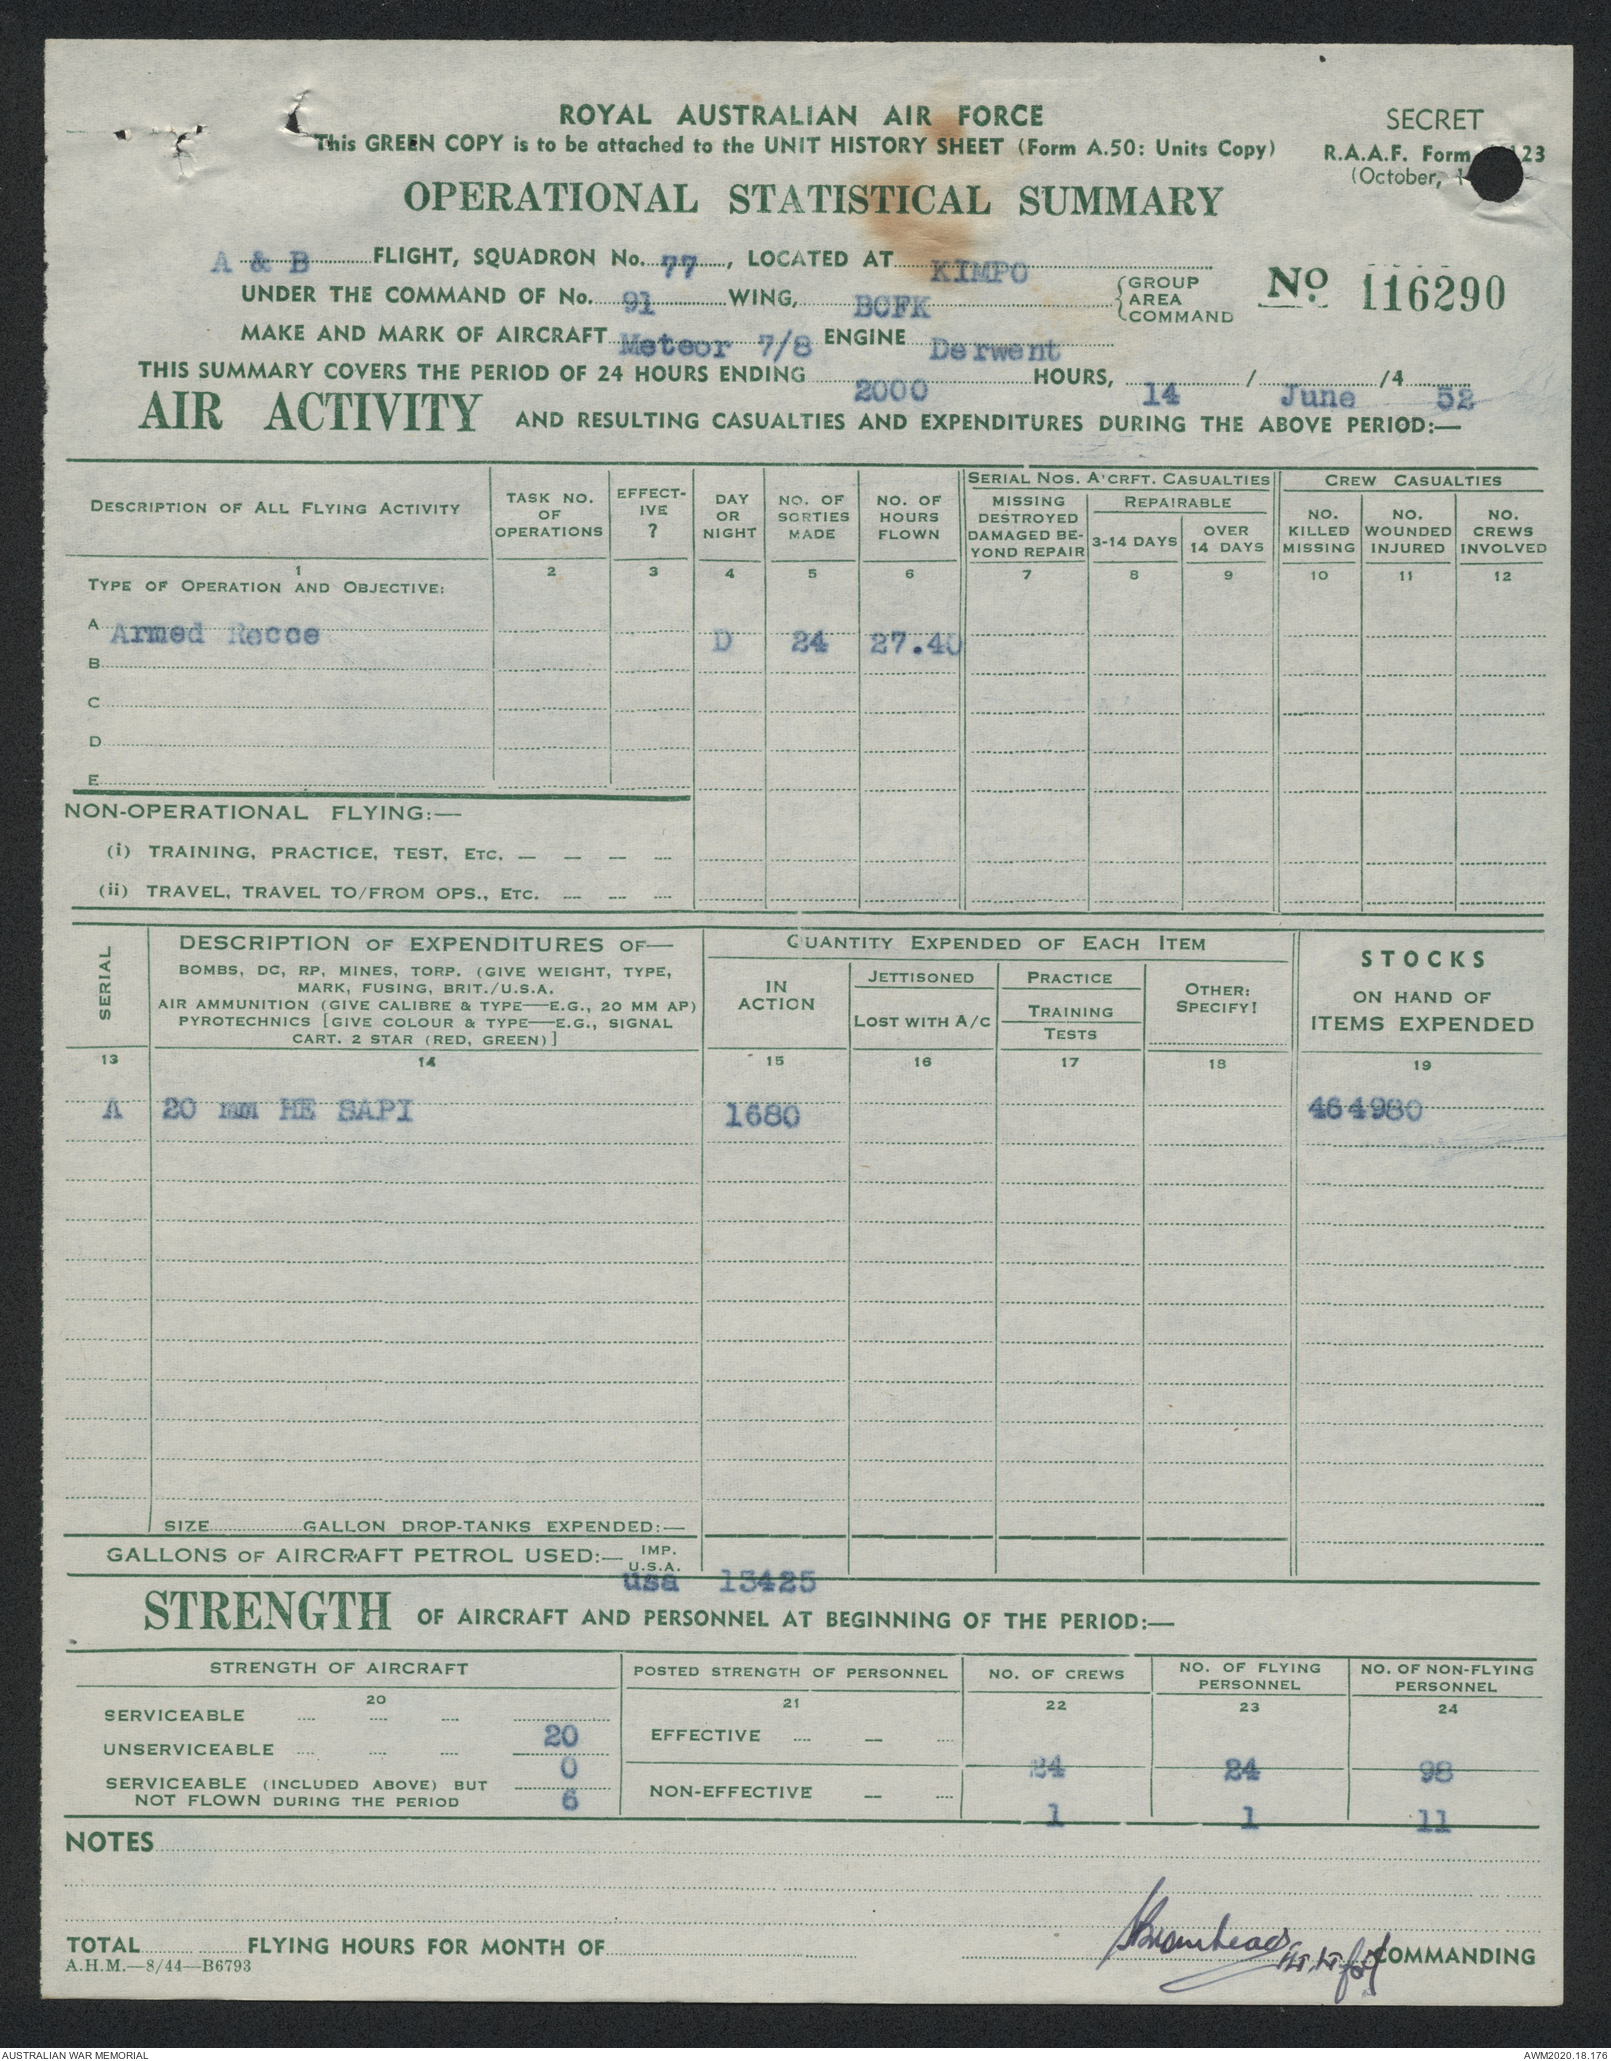 ROYAL AUSTRALIAN AIR FORCE
This GREEN COPY is to be attached to the UNIT HISTORY SHEET (Form A.50: Units Copy)
SECRET
R.A.A.F. Form 23
(October, 1
OPERATIONAL STATISTICAL SUMMARY
A & B FLIGHT, SQUADRON No. 77, LOCATED AT KIMPO
UNDER THE COMMAND OF No. 91 WING, BCFK {GROUP AREA COMMAND
No 116290
MAKE AND MARK OF AIRCRAFT Meteor 7/8 ENGINE Derwent
THIS SUMMARY COVERS THE PERIOD OF 24 HOURS ENDING 2000 HOURS, 14 / June /4 52
AIR ACTIVITY AND RESULTING CASUALTIES AND EXPENDITURES DURING THE ABOVE PERIOD:—
DESCRIPTION OF ALL FLYING ACTIVITY
TASK NO. OF OPERATIONS
EFFECTIVE ?
DAY OR NIGHT
NO. OF SORTIES MADE
NO. OF HOURS FLOWN
SERIAL NOS. A'CRFT. CASUALTIES
MISSING DESTROYED DAMAGED BEYOND REPAIR
REPAIRABLE
3-14 DAYS
OVER 14 DAYS
CREW CASUALTIES
NO. KILLED MISSING
NO. WOUNDED INJURED
NO. CREWS INVOLVED
1 2 3 4 5 6 7 8 9 10 11 12
TYPE OF OPERATION AND OBJECTIVE:
A Armed Recce D 24 27.40
B
C
D
E
NON-OPERATIONAL FLYING:—
(i) TRAINING, PRACTICE, TEST, ETC. — — — —
(ii) TRAVEL, TRAVEL TO/FROM OPS., ETC. — — —
SERIAL
DESCRIPTION OF EXPENDITURES OF—
BOMBS, DC, RP, MINES, TORP. (GIVE WEIGHT, TYPE,
MARK, FUSING, BRIT./U.S.A.
AIR AMMUNITION (GIVE CALIBRE & TYPE—E.G., 20 MM AP)
PYROTECHNICS [GIVE COLOUR & TYPE—E.G., SIGNAL
CART. 2 STAR (RED, GREEN)]
QUANTITY EXPENDED OF EACH ITEM
IN ACTION
JETTISONED
LOST WITH A/C
PRACTICE
TRAINING
TESTS
OTHER: SPECIFY!
STOCKS
ON HAND OF
ITEMS EXPENDED
13 14 15 16 17 18 19
A 20 mm HE SAPI 1680 464980
SIZE GALLON DROP-TANKS EXPENDED:—
GALLONS OF AIRCRAFT PETROL USED:— IMP. U.S.A.
usa 13425
STRENGTH OF AIRCRAFT AND PERSONNEL AT BEGINNING OF THE PERIOD:—
STRENGTH OF AIRCRAFT
POSTED STRENGTH OF PERSONNEL
NO. OF CREWS
NO. OF FLYING PERSONNEL
NO. OF NON-FLYING PERSONNEL
20 21 22 23 24
SERVICEABLE 20
UNSERVICEABLE 0
SERVICEABLE (INCLUDED ABOVE) BUT
NOT FLOWN DURING THE PERIOD 6
EFFECTIVE 24 24 98
NON-EFFECTIVE 1 1 11
NOTES
TOTAL FLYING HOURS FOR MONTH OF
COMMANDING
A.H.M.—8/44—B6793
AUSTRALIAN WAR MEMORIAL
AWM2020.18.176